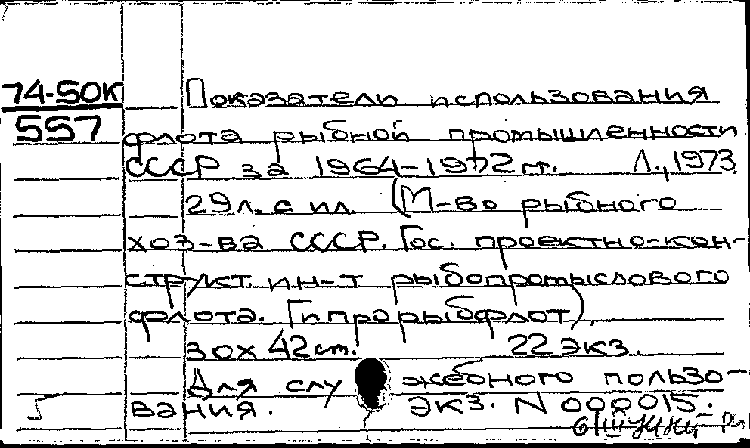 74-50К
557
Показатели использования
флота рыбной промышленности
СССР за 1964-1972 гг. Л., 1973.
29 л. с ил. (М-во рыбного
хоз-ва СССР. Гос. проектно-кон-
структ. ин-т рыбопромыслового
флота. Гипрорыбфлот).
30х42 см. 22 экз.
Для служебного пользо-
вания. Экз. N 000015.